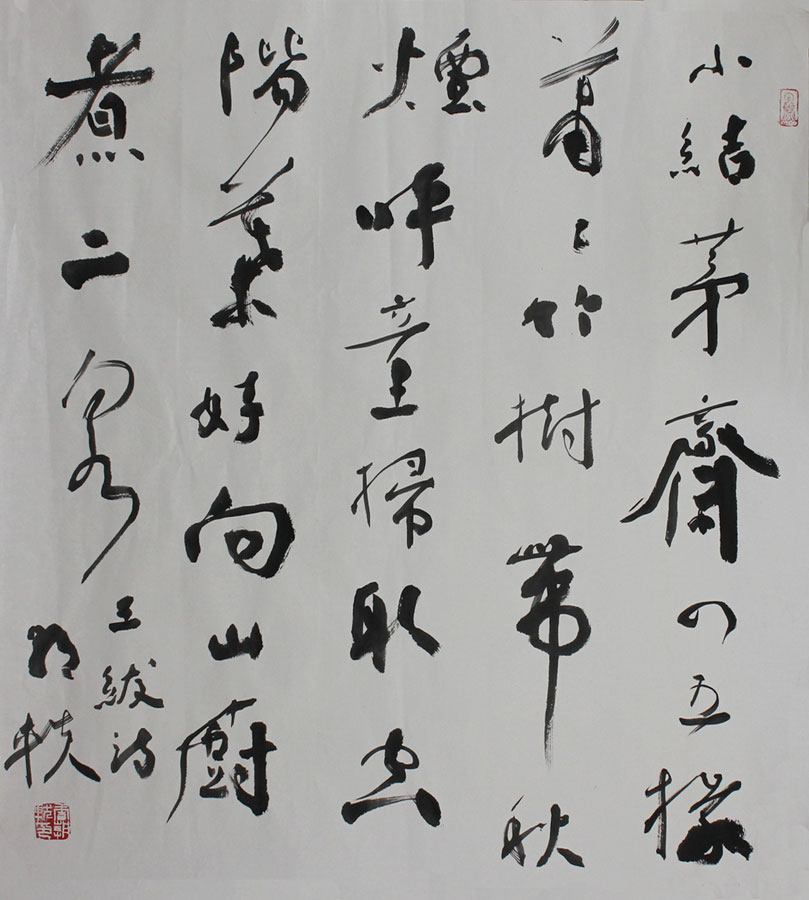 小結茅齋四五椽
蕭〻竹樹帶秋
煙呼童掃取空
階葉好向山廚
煮二泉
王紱詩
軼